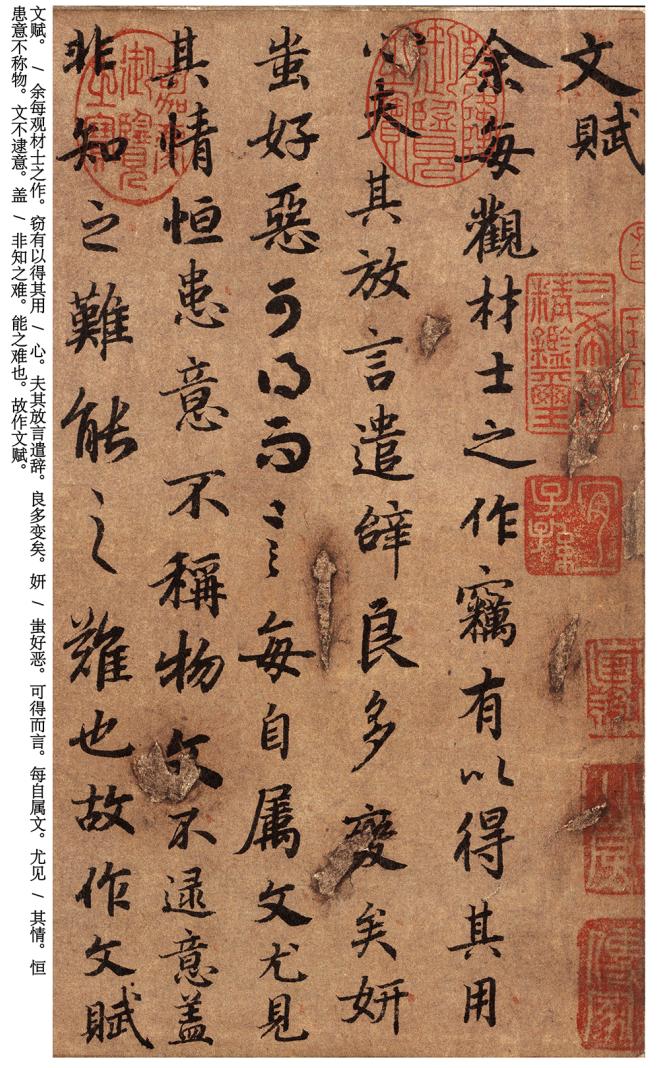 文賦
余每觀材士之作竊有以得其用
心夫其放言遣辭良多變矣妍
蚩好惡可得而言每自属文尤見
其情恒患意不稱物文不逮意盖
非知之難能之難也故作文賦
三希堂精鑑璽
宜子孫
乾隆御覽之寶
嘉慶御覽之寶
文赋。 / 余每观材士之作。窃有以得其用 / 心。夫其放言遣辞。良多变矣。妍 / 蚩好恶。可得而言。每自属文。尤见 / 其情。恒
患意不称物。文不逮意。盖 / 非知之难。能之难也。故作文赋。